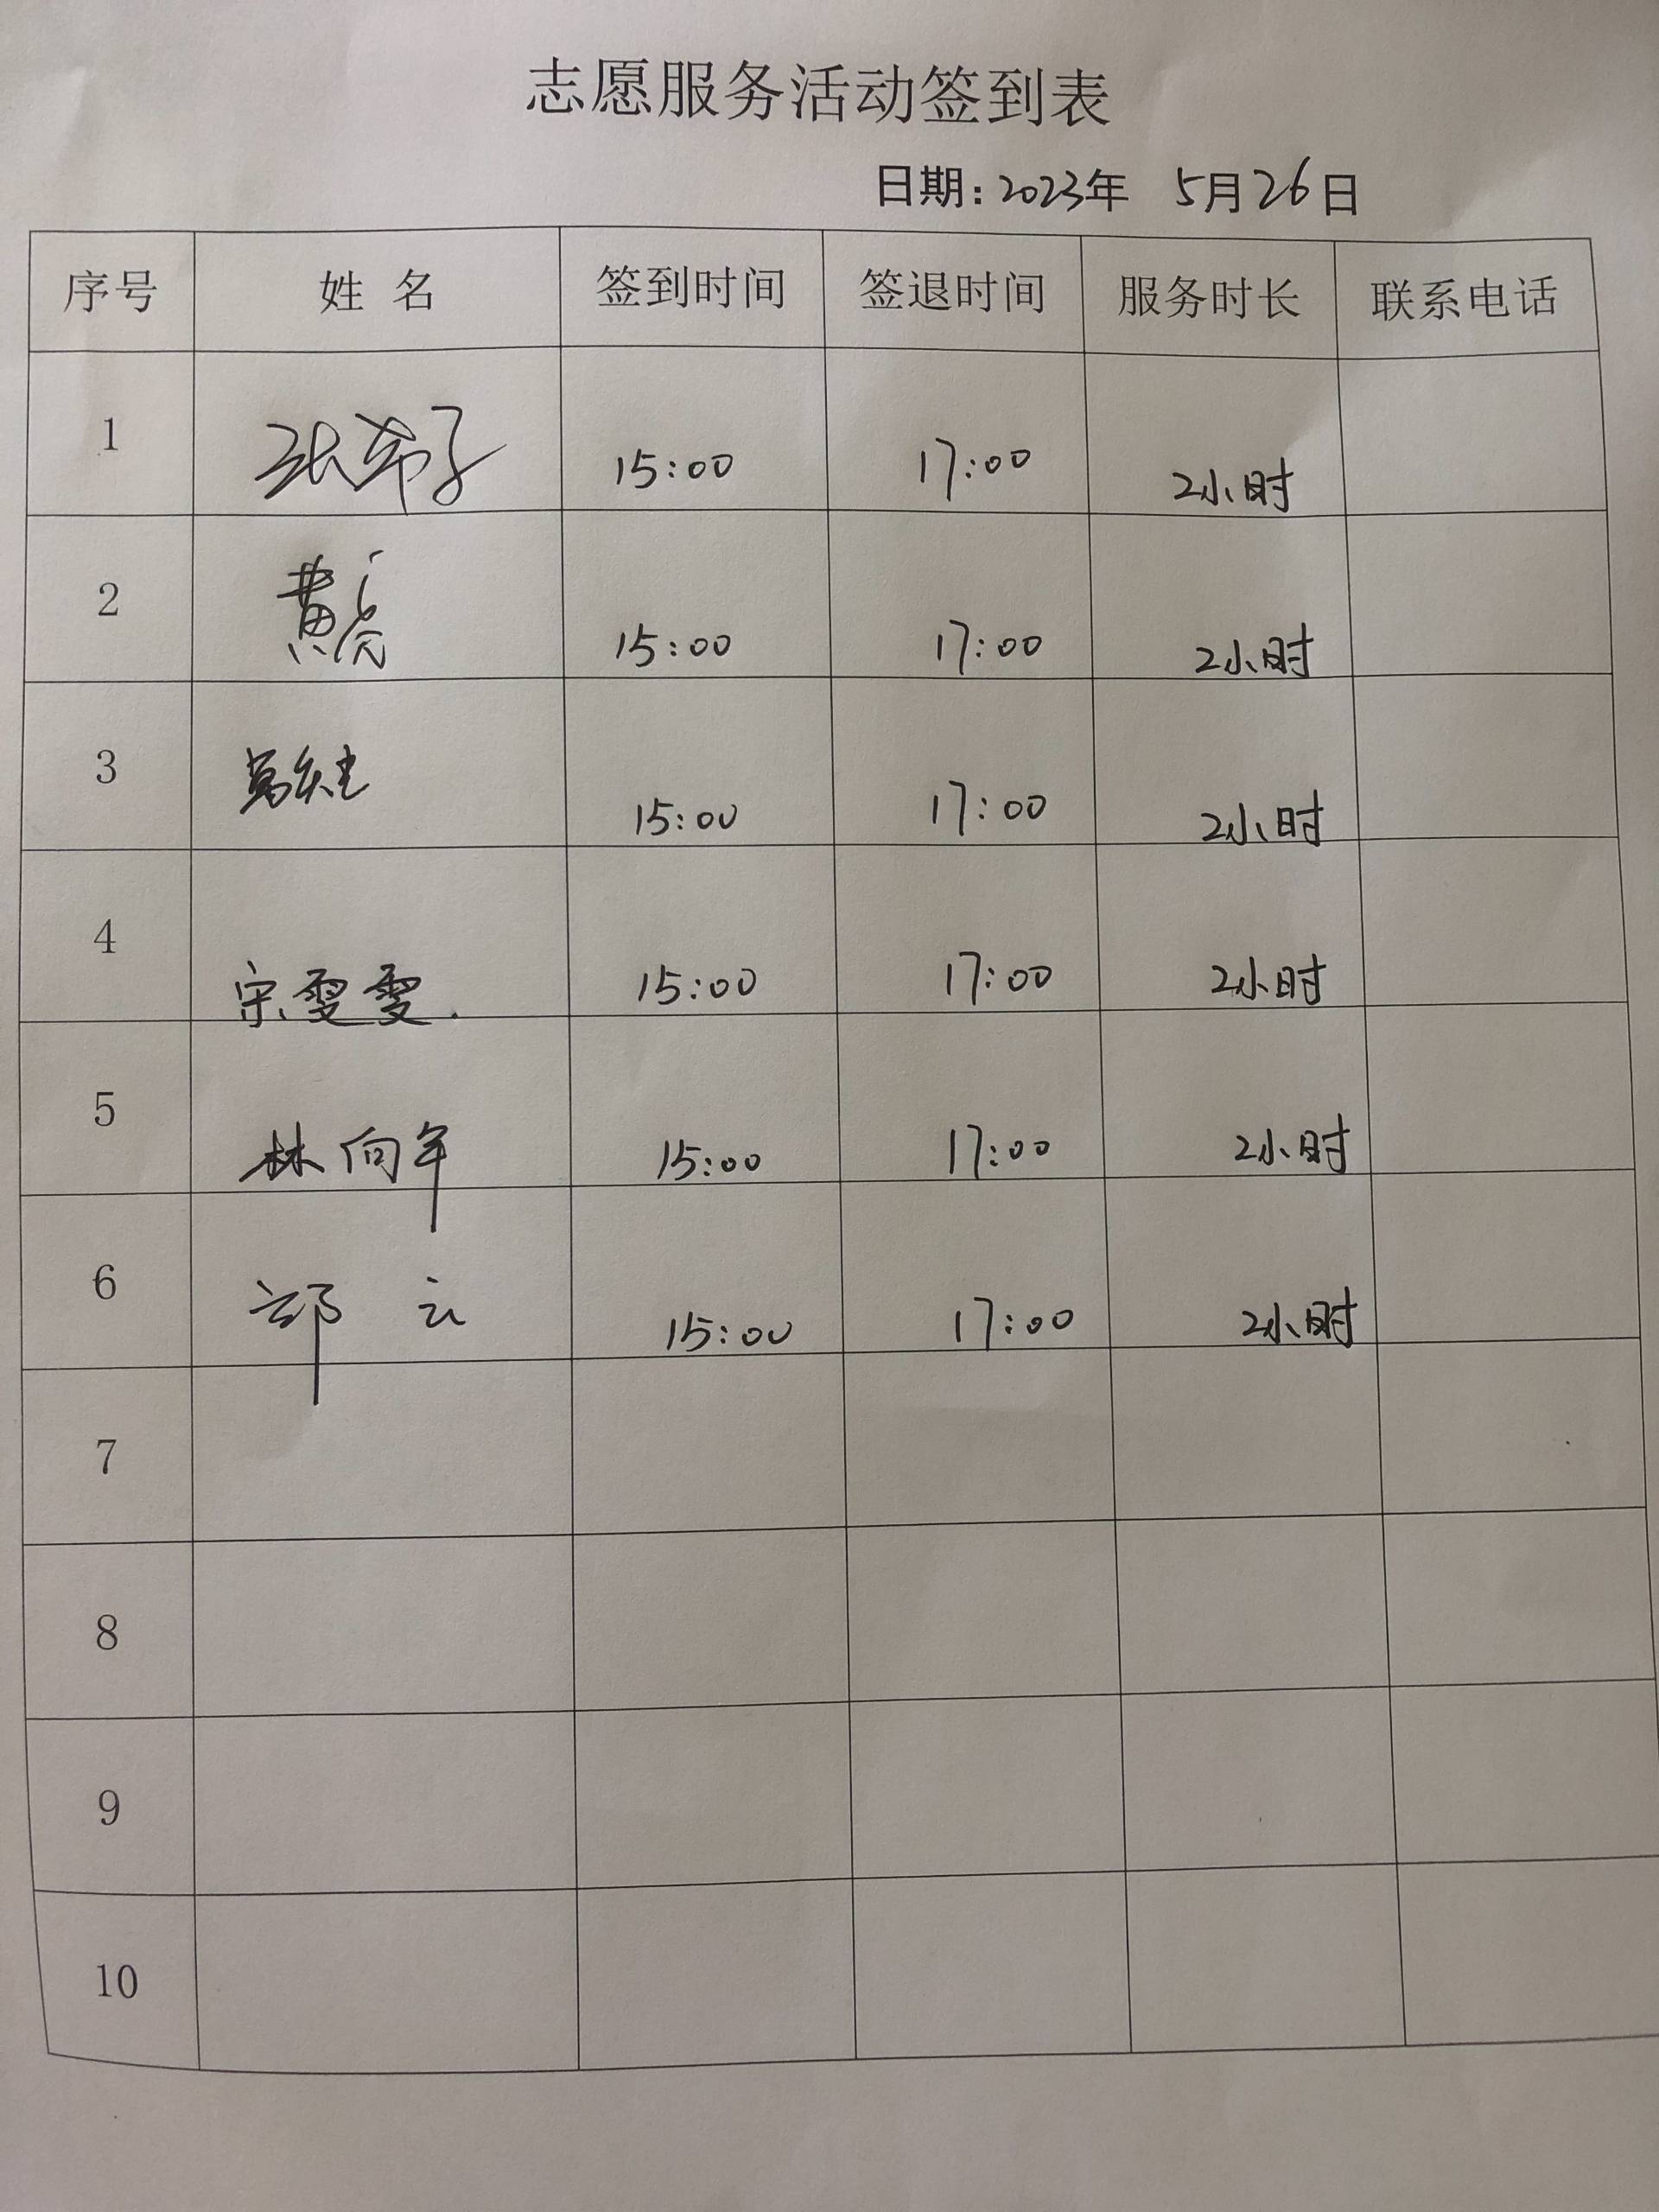 志愿服务活动签到表
日期：2023年 5月26日
序号 姓 名 签到时间 签退时间 服务时长 联系电话
1 张芾子 15:00 17:00 2小时
2 黄亮 15:00 17:00 2小时
3 15:00 17:00 2小时
4 宋雯雯. 15:00 17:00 2小时
5 林向军 15:00 17:00 2小时
6 邵 云 15:00 17:00 2小时
7
8
9
10